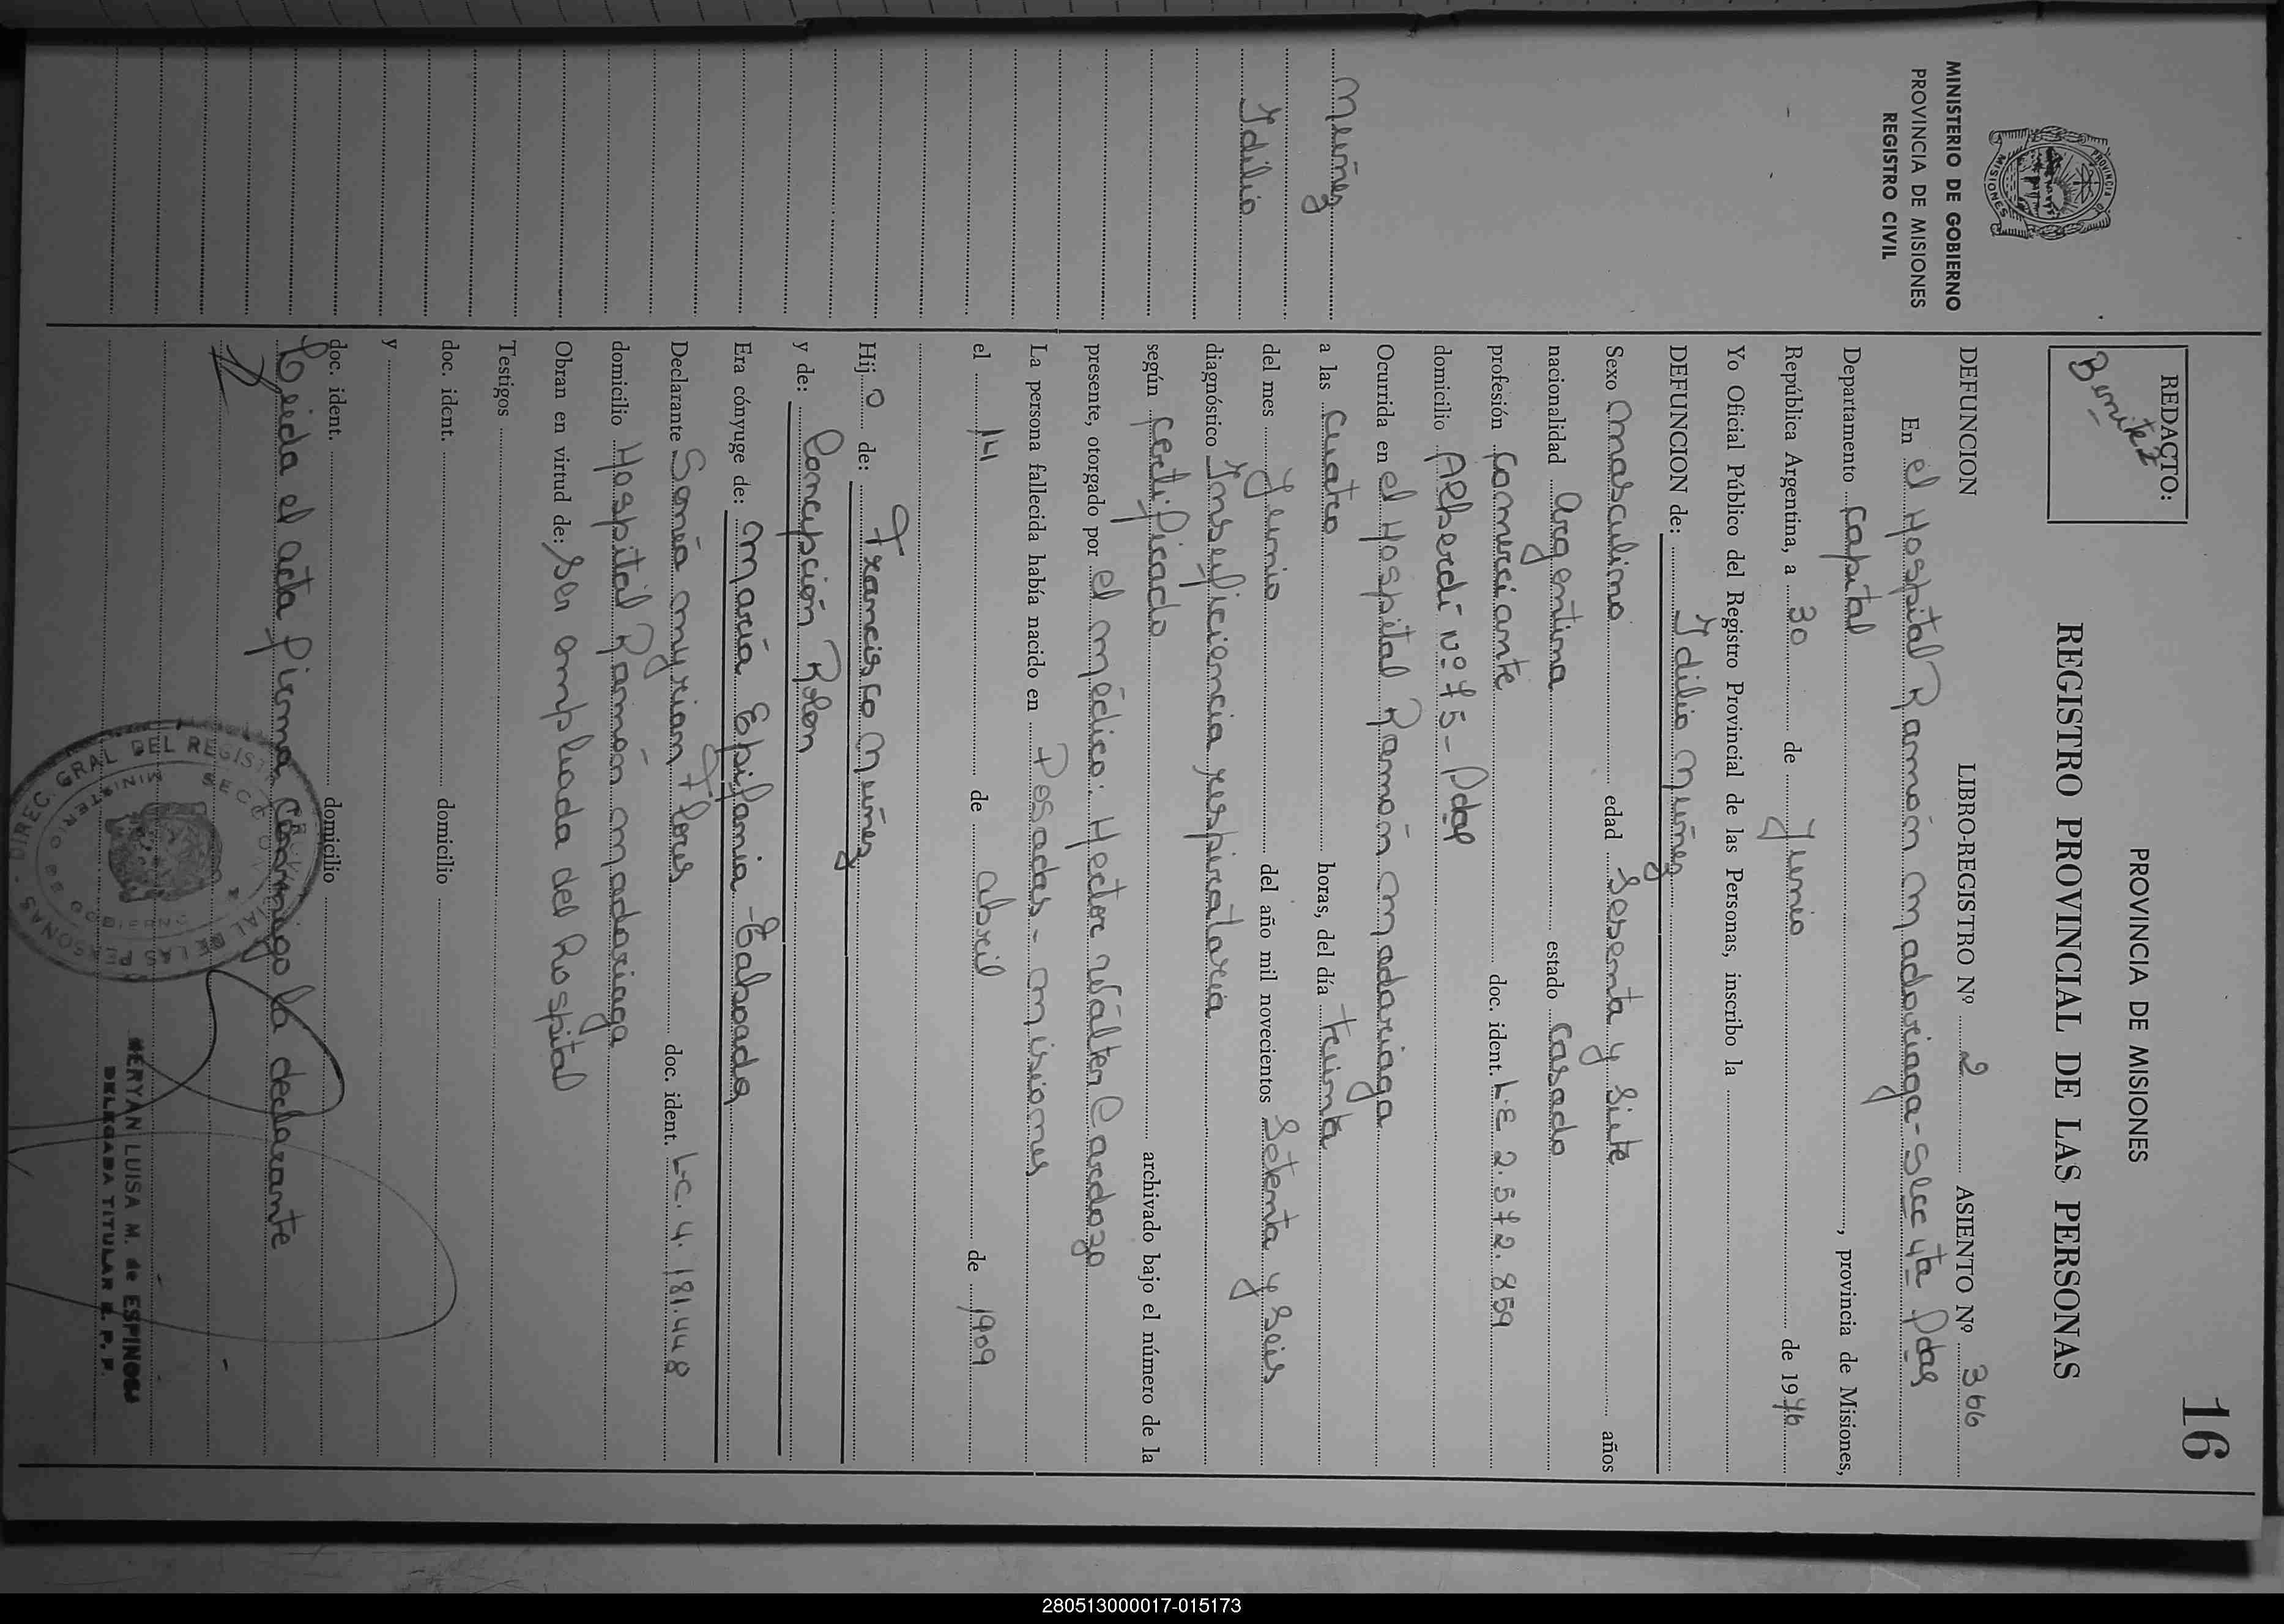 16
PROVINCIA DE MISIONES
REGISTRO PROVINCIAL DE LAS PERSONAS
REDACTO:
Benitez
MINISTERIO DE GOBIERNO
PROVINCIA DE MISIONES
REGISTRO CIVIL
PROVINCIA
MISIONES
Nuñez
Idilio
DEFUNCION LIBRO-REGISTRO Nº 2 ASIENTO Nº 366
En el Hospital Ramón Madariaga - Secc 4ta Pdas
Departamento Capital, provincia de Misiones,
República Argentina, a 30 de Junio de 1976
Yo Oficial Público del Registro Provincial de las Personas, inscribo la
DEFUNCION de: Idilio Nuñez
Sexo Masculino edad Sesenta y Siete años
nacionalidad Argentina estado Casado
profesión Comerciante doc. ident. L.E 2.572.859
domicilio Alberdi Nº 75 - Pdas
Ocurrida en el Hospital Ramón Madariaga
a las Cuatro horas, del día treinta
del mes Junio del año mil novecientos Setenta y Seis
diagnóstico Insuficiencia respiratoria
según certificado archivado bajo el número de la
presente, otorgado por el Médico: Hector Wálter Cardozo
La persona fallecida había nacido en Posadas - Misiones
el 14 de abril de 1909
Hijo de: Francisco Nuñez
y de: Concepción Rolon
Era cónyuge de: María Epifania Taboada
Declarante Sonia Myriam Flores doc. ident. L.C. 4.181.448
domicilio Hospital Ramón Madariaga
Obran en virtud de: Ser empleada del Hospital
Testigos
doc. ident. domicilio
y
doc. ident. domicilio
Leida el acta firma conmigo la declarante
DIREC. GRAL DEL REGISTRO PROVINCIAL DE LAS PERSONAS
MERYAN LUISA M. de ESPINOSA
DELEGADA TITULAR R. P. P.
280513000017-015173